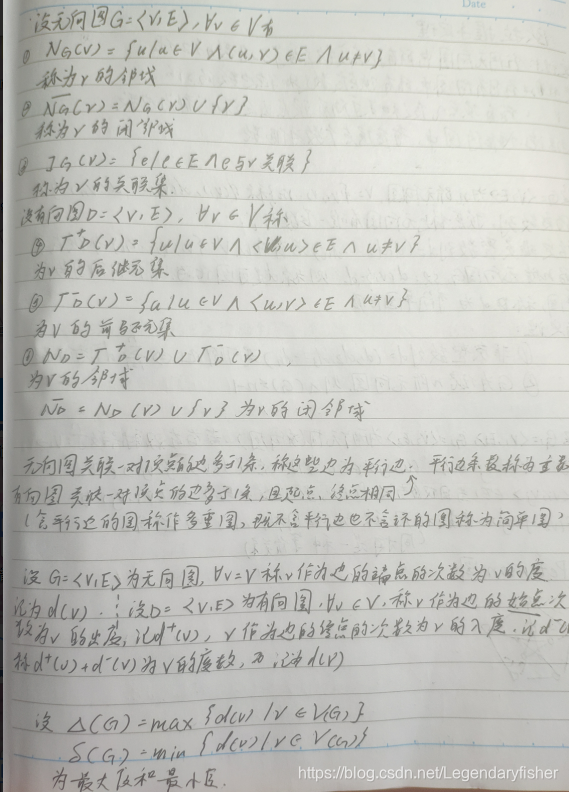 设无向图G=<V,E>, ∀v∈V有
① NG(v)={u|u∈V∧(u,v)∈E∧u≠v}
称为v的邻域
② N̄G(v)=NG(v)∪{v}
称为v的闭邻域
③ IG(v)={e|e∈E∧e与v关联}
称为v的关联集
设有向图D=<V,E>, ∀v∈V称
Γ⁺D(v)={u|u∈V∧<v,u>∈E∧u≠v}
为v的后继元集
Γ⁻D(v)={u|u∈V∧<u,v>∈E∧u≠v}
为v的前驱元集
ND=Γ⁺D(v)∪Γ⁻D(v)
为v的邻域
N̄D=ND(v)∪{v}为v的闭邻域
无向图关联一对顶点的边多于1条,称这些边为平行边.平行边条数称为重数
有向图关联一对顶点的边多于1条,且起点,终点相同↑
(含平行边的图称作多重图,既不含平行边也不含环的图称为简单图)
设G=<V,E>为无向图,∀v=V称v作为边的端点的次数为v的度
记为d(v).设D=<V,E>为有向图,∀v∈V,称v作为边的始点次
数为v的出度,记d⁺(v),v作为边的终点的次数为v的入度.记d⁻(
称d⁺(v)+d⁻(v)为v的度数,记d(v)
设 Δ(G)=max{d(v)|v∈V(G)}
δ(G)=min{d(v)|v∈V(G)}
为最大度和最小度.
Date
https://blog.csdn.net/Legendaryfisher